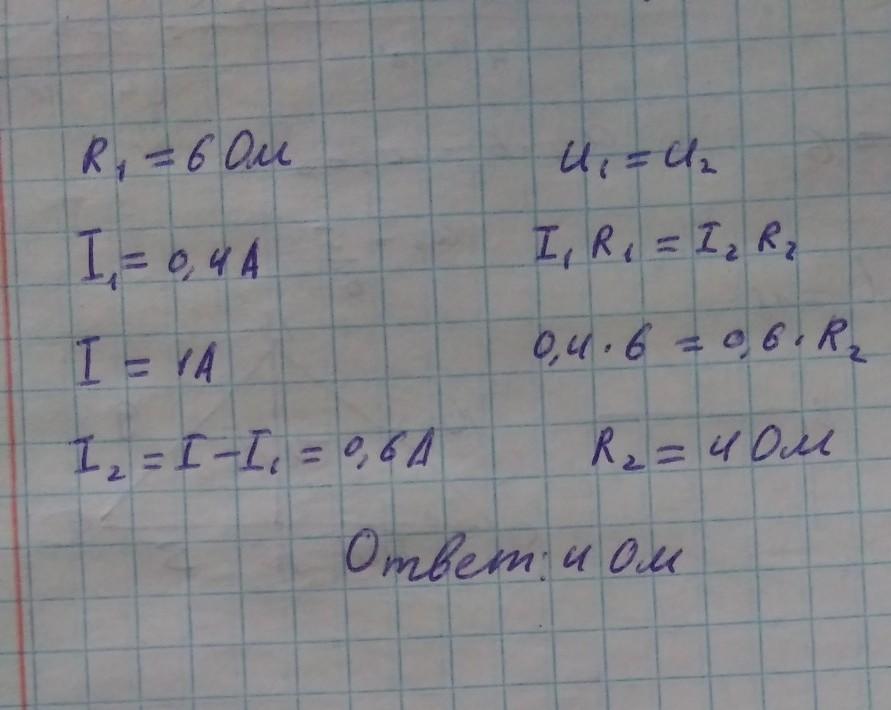 R₁ = 6 Ом
I₁ = 0,4 А
I = 1А
I₂ = I - I₁ = 0,6 А
U₁ = U₂
I₁ R₁ = I₂ R₂
0,4 · 6 = 0,6 · R₂
R₂ = 4 Ом
Ответ: 4 Ом